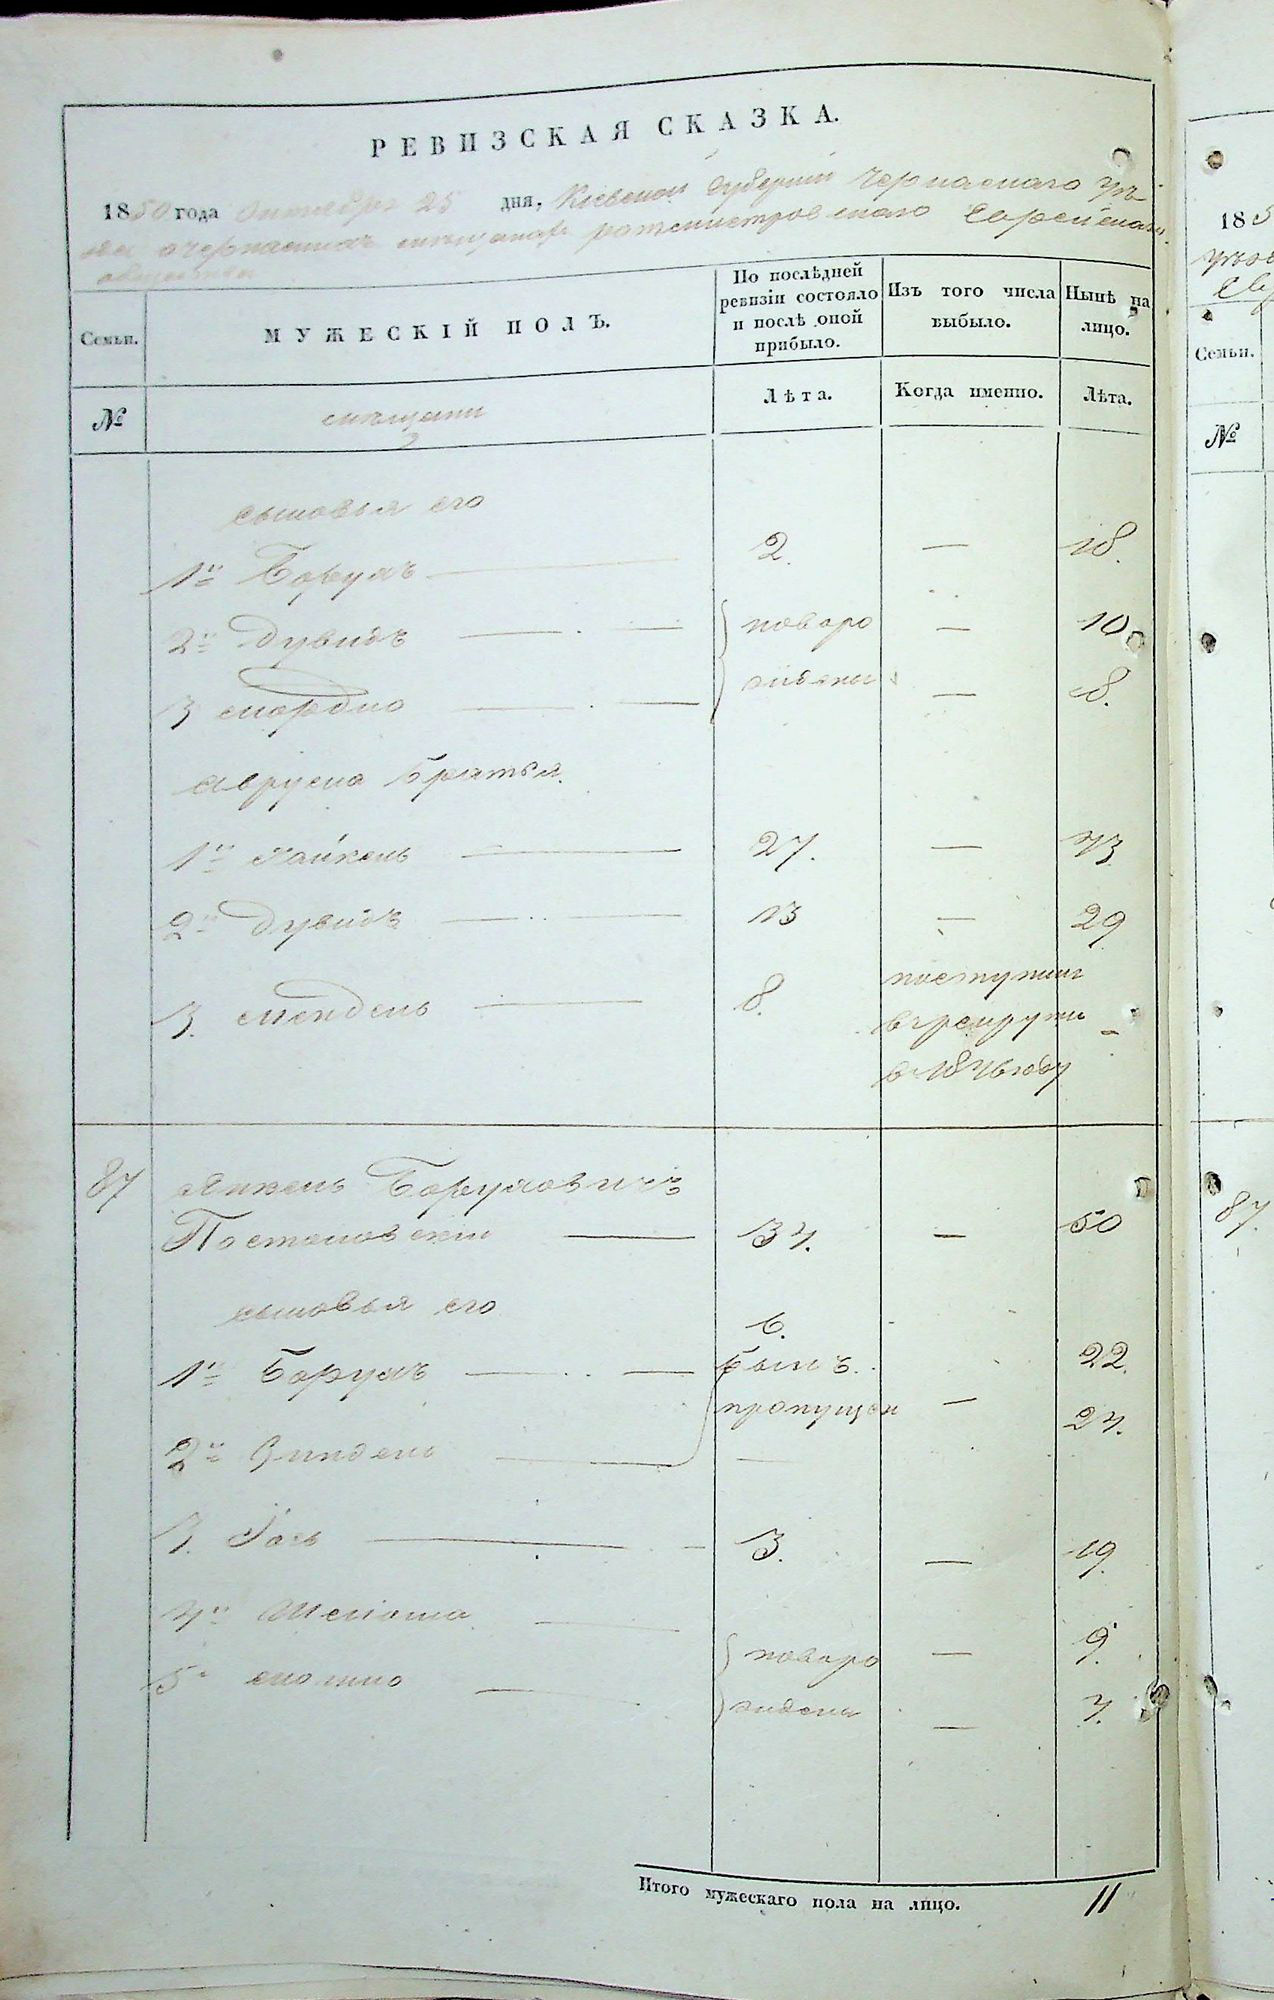 РЕВИЗСКАЯ СКАЗКА.
1850 года Октября 25 дня, Кіевской Губерніи Черкаскаго уѣз
да о черкаскихъ мещанахъ ротмистровскаго Еврейскаго
общества
Семьи.
МУЖЕСКІЙ ПОЛЪ.
По послѣдней ревизіи состояло и послѣ оной прибыло.
Изъ того числа выбыло.
Нынѣ на лицо.
№
мещани
Лѣта.
Когда именно.
Лѣта.
сыновья его
1й Борухъ 2. — 18.
2й Дувидъ новоро — 10
3 Мордко жидены — 8.
Аврума братья.
1й Хайкель 27. — 43
2й Дувидъ 13 — 29
поступил
3. Мендель 8. в рекруты -
в 1846 году
87 Янкель Боруховичъ
Постановскій 34. — 50
сыновья его
6.
1й Борухъ былъ 22.
пропущен — 24.
2й Зиндель —
3. Іось 3. — 19.
4й Шліома новоро — 9.
5й жидены — 4.
Итого мужескаго пола на лицо. 11
185
Семьи.
№
87.